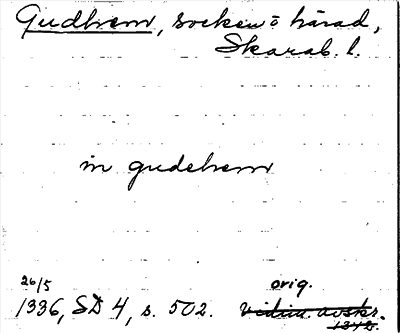 Gudhem, socken o härad,
Skarab. l.
in gudehem
26/5 orig.
1336, SD 4, s. 502. vidim. avskr.